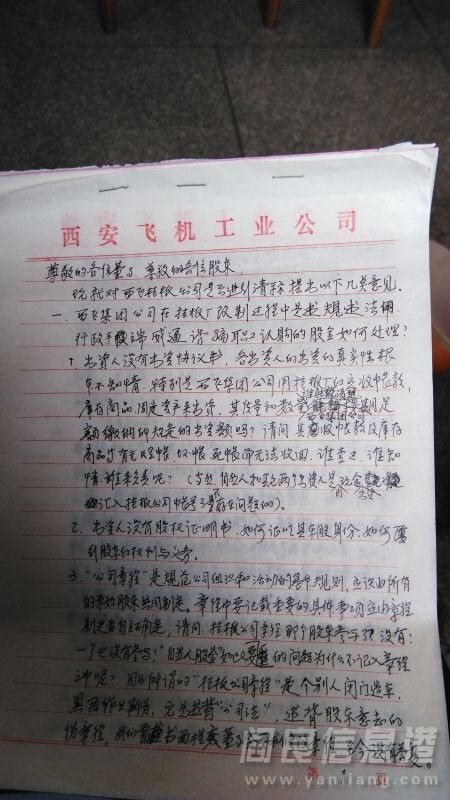 西安飞机工业公司
尊敬的各位董事 尊敬的各位股东
现就对西飞挂板公司是否进行清算 提出以下几点意见。
一、西飞集团公司在挂板厂改制过程中是违规违法用
行政手段 威逼、诱骗职工认购的股金如何处理？
1、出资人没有出资协议书，各出资人的出资的真实性根
本不知情，特别是西飞集团公司用挂板厂的应收帐款，
库存商品，固定资产来出资，其质量和数量
额缴纳的规定的出资额吗？请问其应收帐款及库存
商品有无呆帐、坏帐、死帐而无法收回，谁查过，谁知
情，谁来负责呢？
汇入挂板公司帐号是存在问题的）。
2、出资人没有股权证明书，如何证明其股东身份，如何享
利股东的权利与义务。
3、“公司章程”是规范公司组织和活动的基本规则，应该由所有
的原始股东共同制定。章程中要记载重要的具体事项应由章程
制定者自主确定，请问：挂板公司章程那个股东参与了？没有：
一个也没有参与，“自然人股金”如此重要的问题为什么不记入章程
之中呢？因此所谓的“挂板公司章程”是个别人闭门造车，
是违背“公司法”，违背股东意志的
伪章程。我们书面提交至今没答复。
第 页
阎良信息港
www.yanliang.com